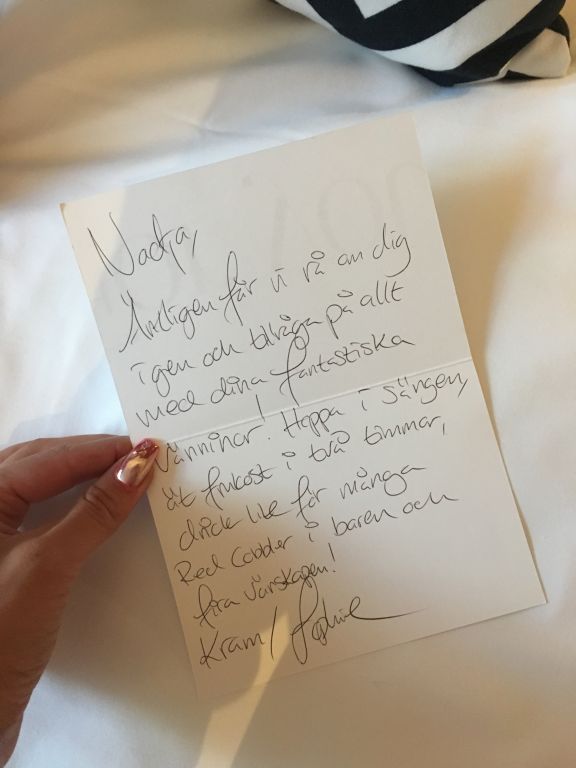 Nadja,
Äntligen får vi rå om dig
igen och tillråga på allt
med dina fantastiska
väninnor! Hoppa i sängen,
ät frukost i två timmar,
drick lite för många
Red Cobbler i baren och
fira vänskapen!
Kram/ Sophie